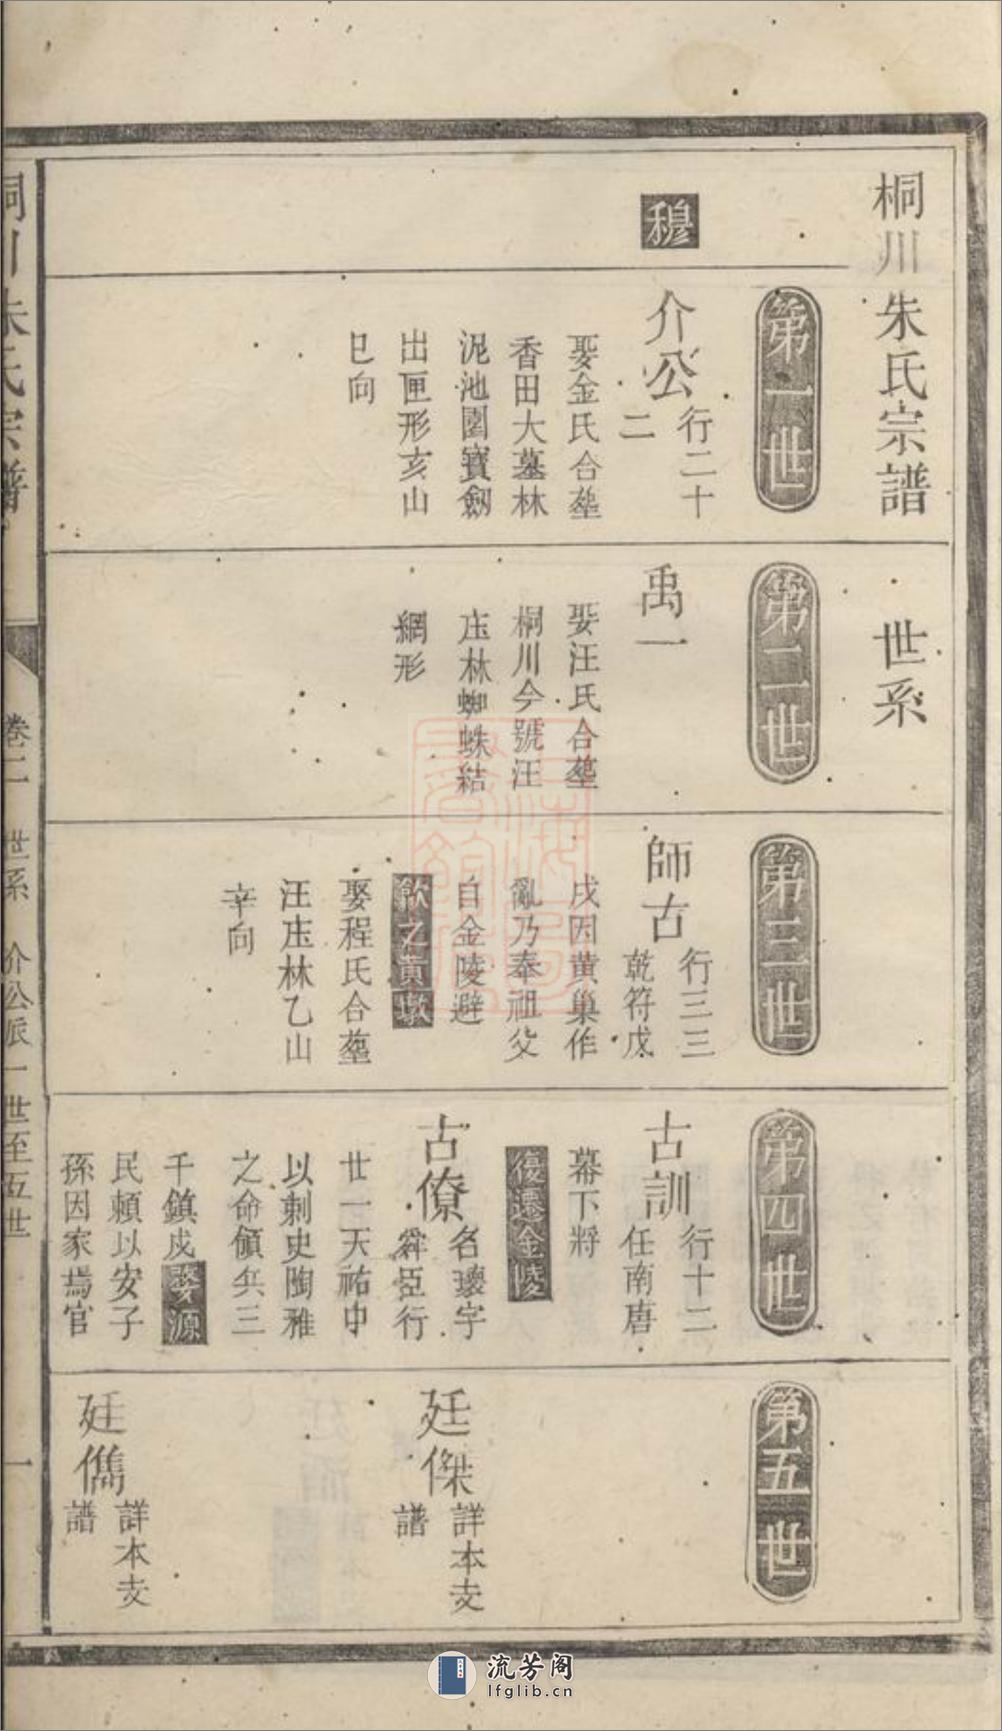 桐川朱氏宗譜
世系
第一世
穆
介公
行二十
二
娶金氏合塟
香田大墓林
泥池園寶劔
出匣形亥山
巳向
第二世
禹一
娶汪氏合塟
桐川今號汪
庄林蜘蛛結
網形
第三世
師古
行三三
乾符戊
戌因黄巢作
亂乃奉祖父
自金陵避
歙之黄墩
娶程氏合塟
汪庄林乙山
辛向
第四世
古訓
行十二
任南唐
幕下將
復遷金陵
古僚
名瓌字
舜臣行
廿一天祐中
以刺史陶雅
之命領兵三
千鎮戍婺源
民賴以安子
孫因家焉官
第五世
廷傑
詳本支
譜
廷儁
詳本支
譜
桐川朱氏宗譜
卷二 世系 介公派一世至五世
一
上海圖書館藏
流芳阁
lfglib.cn